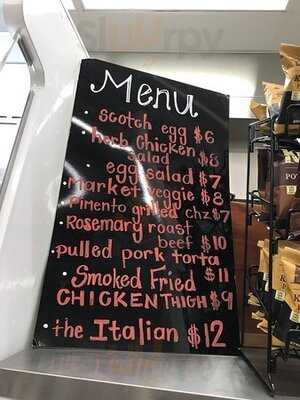 Menu
• scotch egg $6
• herb chicken
salad $8
• egg salad $7
• market veggie $8
• Pimento grilled chz $7
• Rosemary roast
beef $10
• pulled pork torta
$11
• Smoked Fried
CHICKEN THIGH $9
• the Italian $12